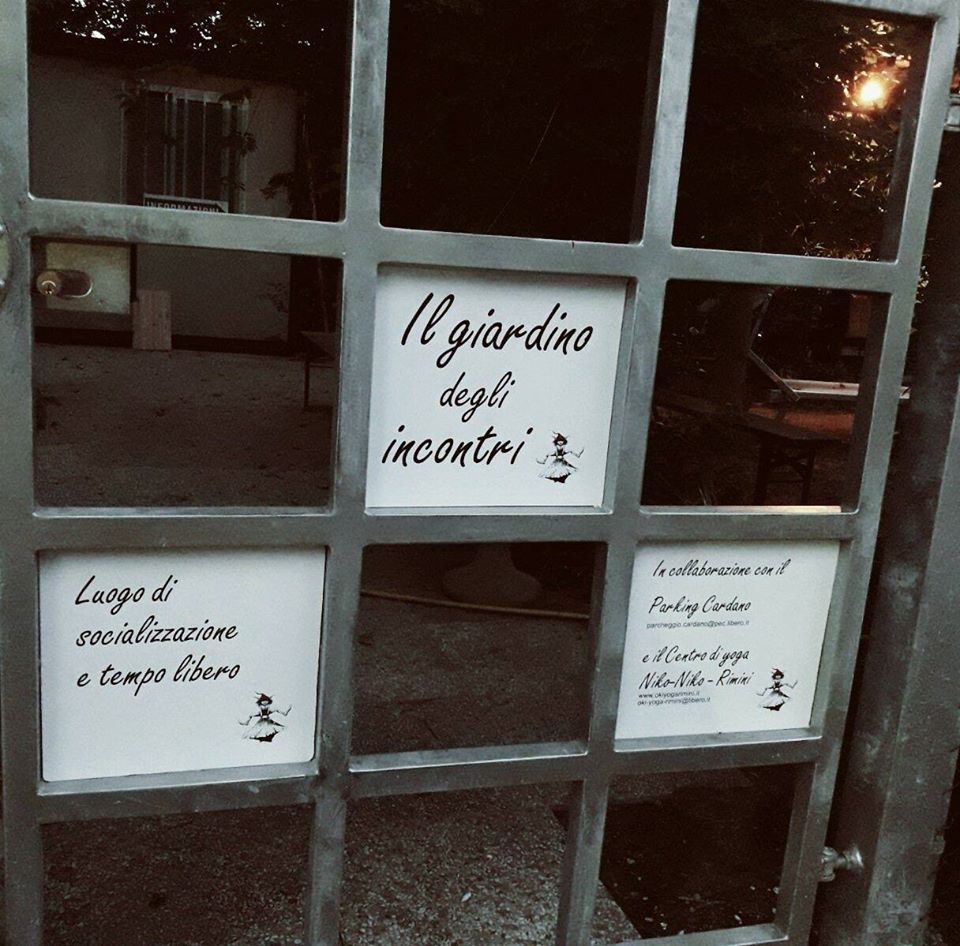 INFORMAZIONI
Il giardino
degli
incontri
Luogo di
socializzazione
e tempo libero
In collaborazione con il
Parking Cardano
parcheggio.cardano@pec.libero.it
e il Centro di yoga
Niko-Niko - Rimini
www.okiyogarimini.it
oki-yoga-rimini@libero.it